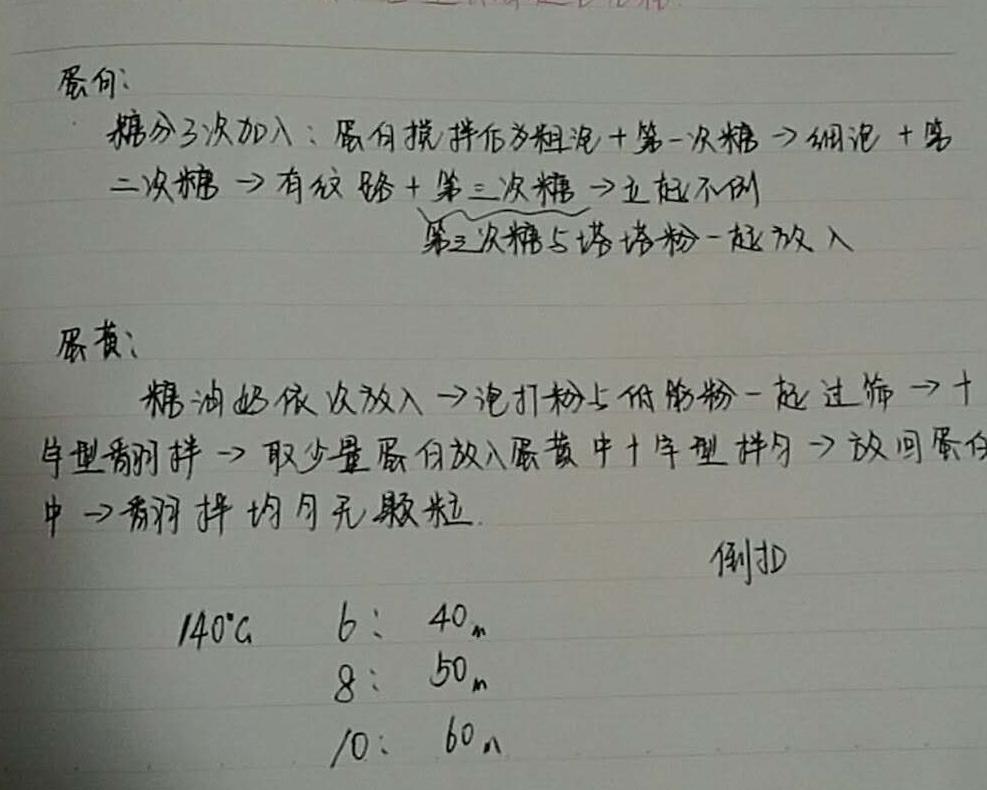 蛋白:
糖分3次加入:蛋白搅拌作为粗泡+第一次糖→细泡+第
二次糖→有纹路+第三次糖→立起不倒
第三次糖与塔塔粉一起放入
蛋黄:
糖油奶依次放入→泡打粉与低筋粉一起过筛→十
字型翻拌→取少量蛋白放入蛋黄中十字型拌匀→放回蛋白
中→翻拌均匀无颗粒.
倒扣
140°C 6: 40m
8: 50m
10: 60m